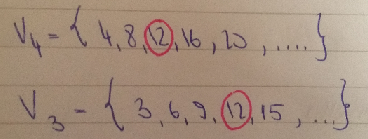 V₄ = { 4, 8, 12, 16, 20, .... }
V₃ = { 3, 6, 9, 12, 15, ... }